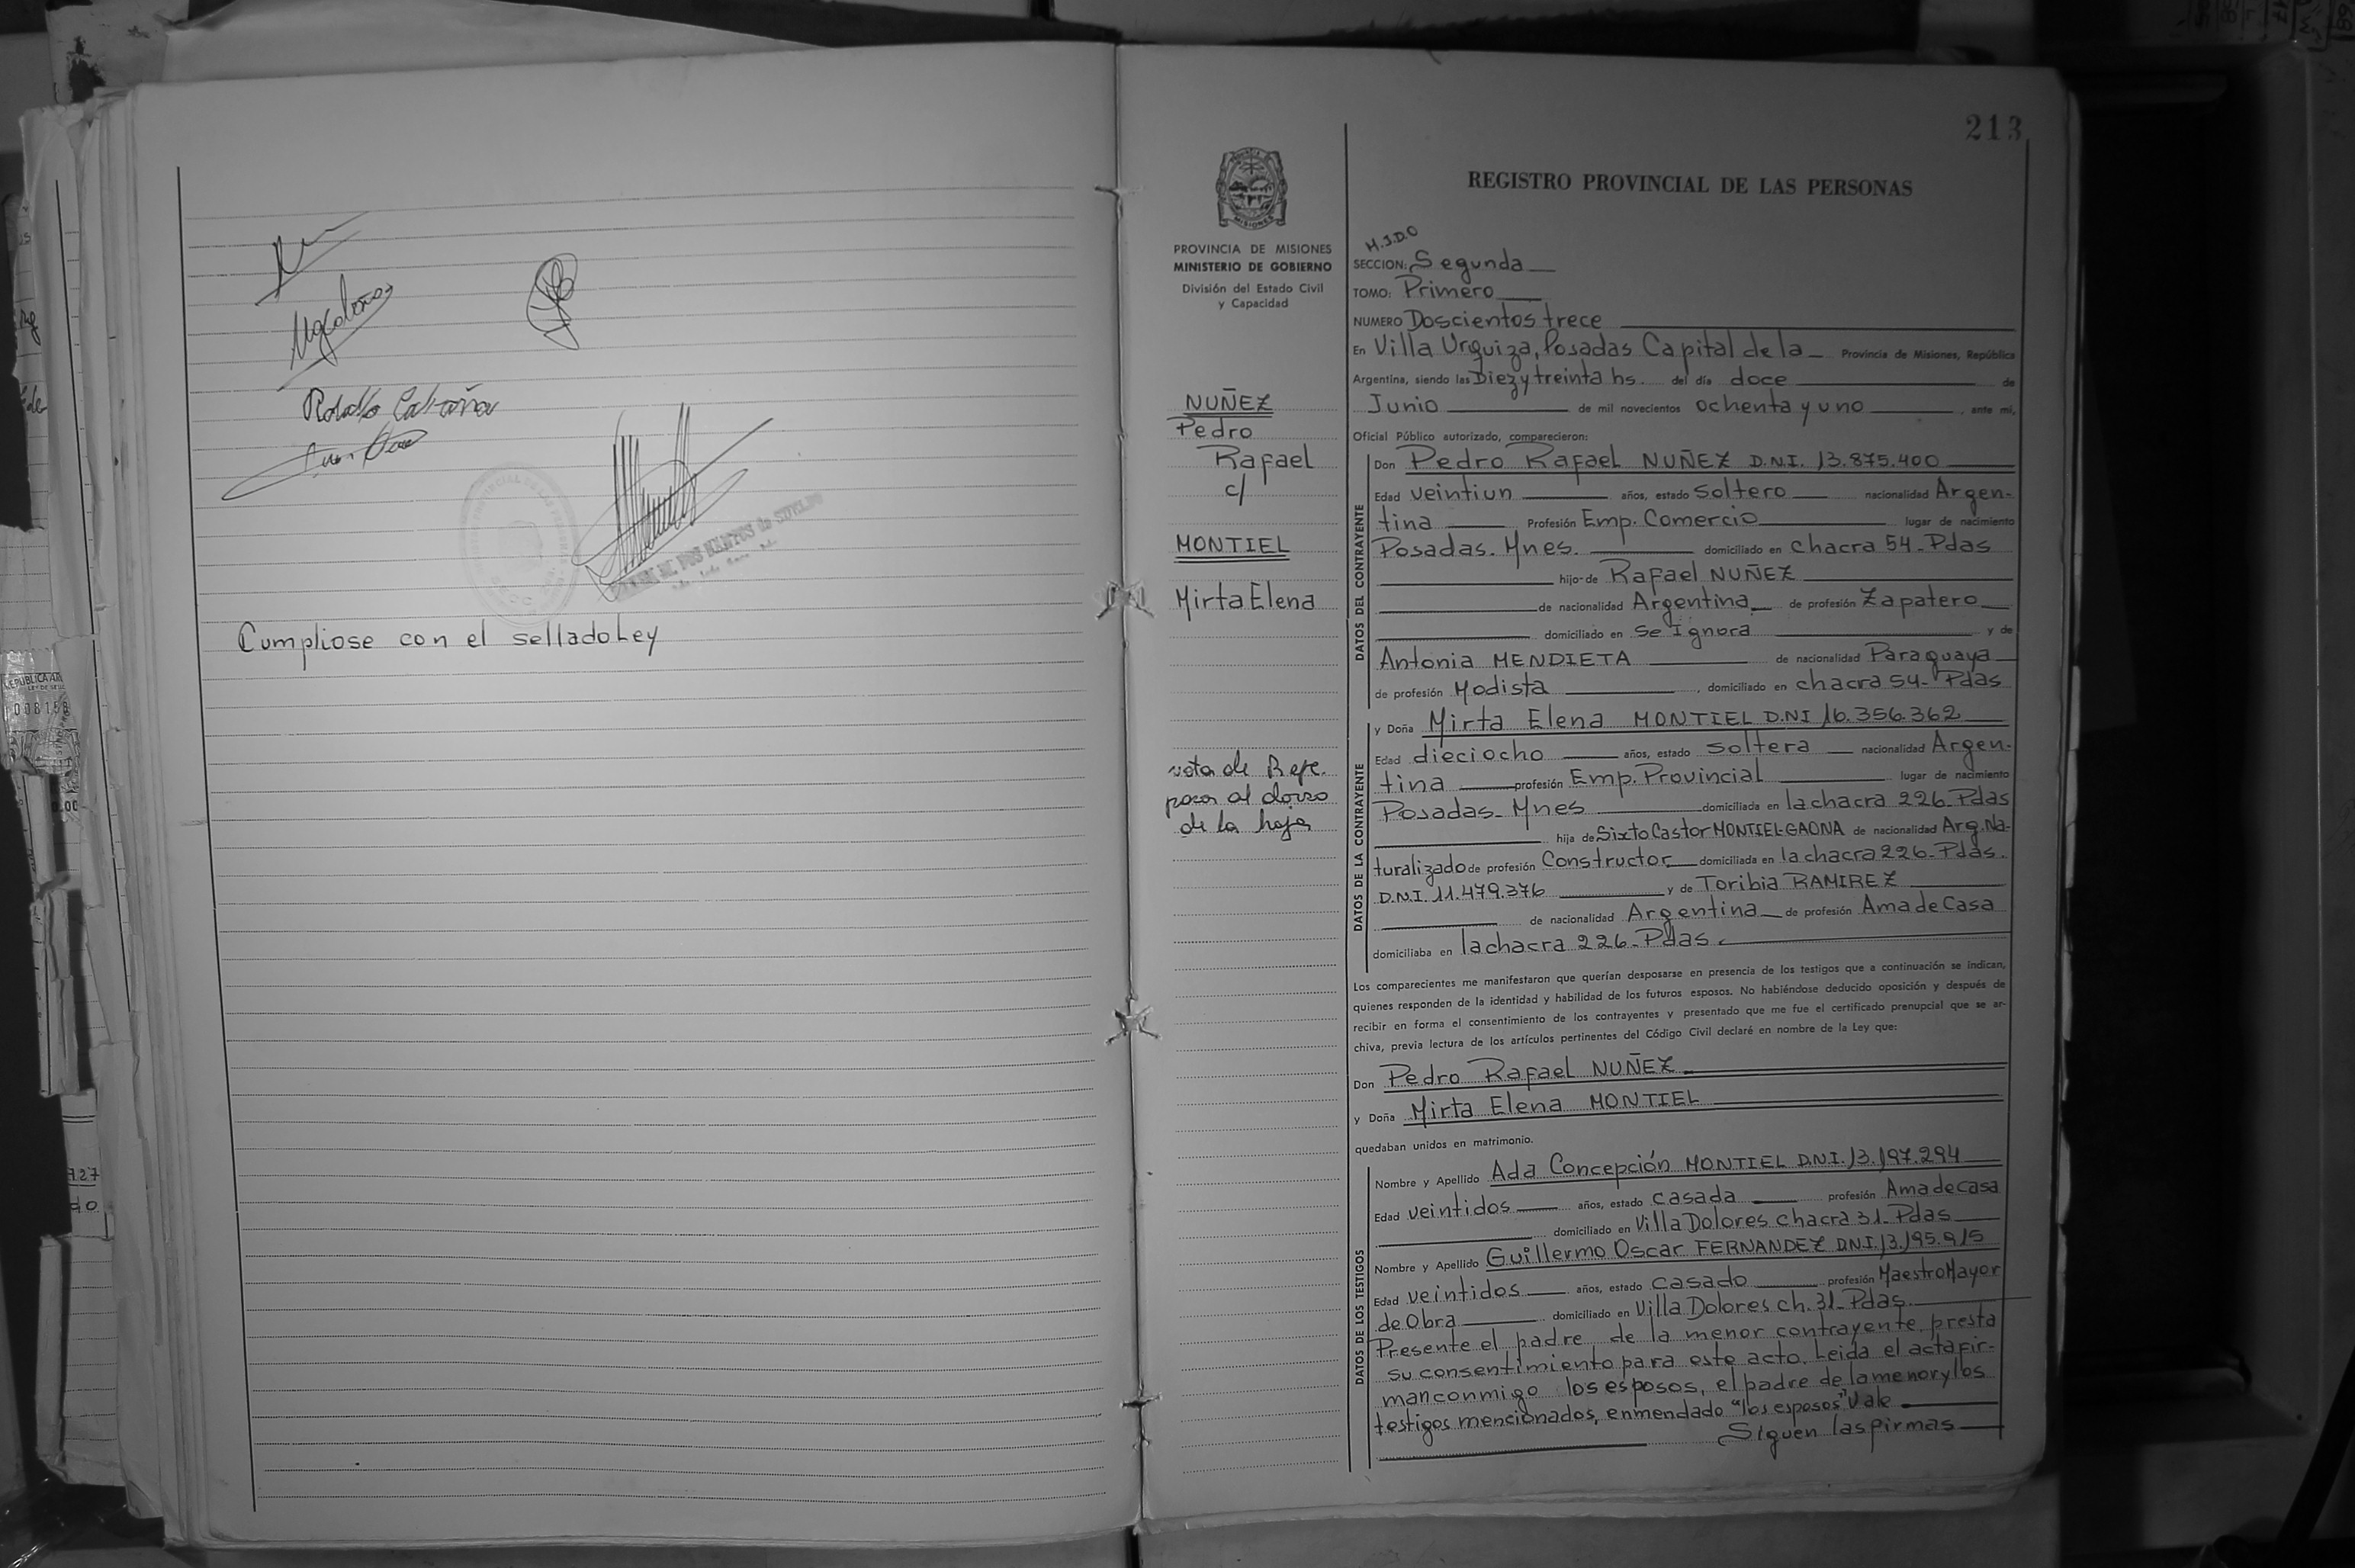 Cumpliose con el sellado Ley
213
REGISTRO PROVINCIAL DE LAS PERSONAS
PROVINCIA DE MISIONES
MINISTERIO DE GOBIERNO
División del Estado Civil
y Capacidad
NUÑEZ
Pedro
Rafael
c/
MONTIEL
Mirta Elena
nota de Refe.
pasa al dorso
de la hoja
SECCION: Segunda
TOMO: Primero
NUMERO Doscientos trece
En Villa Urquiza, Posadas Capital de la Provincia de Misiones, República
Argentina, siendo las Diez y treinta hs. del día doce de
Junio de mil novecientos ochenta y uno, ante mi,
Oficial Público autorizado, comparecieron:
DATOS DEL CONTRAYENTE
Don Pedro Rafael NUÑEZ D.N.I. 13.875.400
Edad veintiun años, estado soltero nacionalidad Argen-
tina Profesión Emp. Comercio lugar de nacimiento
Posadas. Mnes. domiciliado en chacra 54-Pdas
hijo de Rafael NUÑEZ
de nacionalidad Argentina de profesión Zapatero
domiciliado en se Ignora y de
Antonia MENDIETA de nacionalidad Paraguaya
de profesión Modista, domiciliado en chacra 54- Pdas
DATOS DE LA CONTRAYENTE
y Doña Mirta Elena MONTIEL D.N.I 16.356.362
Edad dieciocho años, estado soltera nacionalidad Argen-
tina profesión Emp. Provincial lugar de nacimiento
Posadas- Mnes domiciliada en la chacra 226-Pdas
hija de Sixto Castor MONTIEL-GAONA de nacionalidad Arg. Na-
turalizado de profesión Constructor domiciliada en la chacra 226-Pdas.
D.N.I. 11.479.376 y de Toribia RAMIREZ
de nacionalidad Argentina de profesión Ama de Casa
domiciliaba en la chacra 226-Pdas.
Los comparecientes me manifestaron que querían desposarse en presencia de los testigos que a continuación se indican,
quienes responden de la identidad y habilidad de los futuros esposos. No habiéndose deducido oposición y después de
recibir en forma el consentimiento de los contrayentes y presentado que me fue el certificado prenupcial que se ar-
chiva, previa lectura de los artículos pertinentes del Código Civil declaré en nombre de la Ley que:
Don Pedro Rafael NUÑEZ
y Doña Mirta Elena MONTIEL
quedaban unidos en matrimonio.
DATOS DE LOS TESTIGOS
Nombre y Apellido Ada Concepción MONTIEL D.N.I. 13.197.294
Edad veintidos años, estado casada profesión Ama de casa
domiciliado en Villa Dolores chacra 31-Pdas
Nombre y Apellido Guillermo Oscar FERNANDEZ D.N.I. 13.195.915
Edad veintidos años, estado casado profesión Maestro Mayor
de Obra domiciliado en Villa Dolores ch. 31-Pdas.
Presente el padre de la menor contrayente, presta
su consentimiento para este acto. Leida el acta fir-
man conmigo los esposos, el padre de la menor y los
testigos mencionados, enmendado "los esposos" Vale
Siguen las firmas